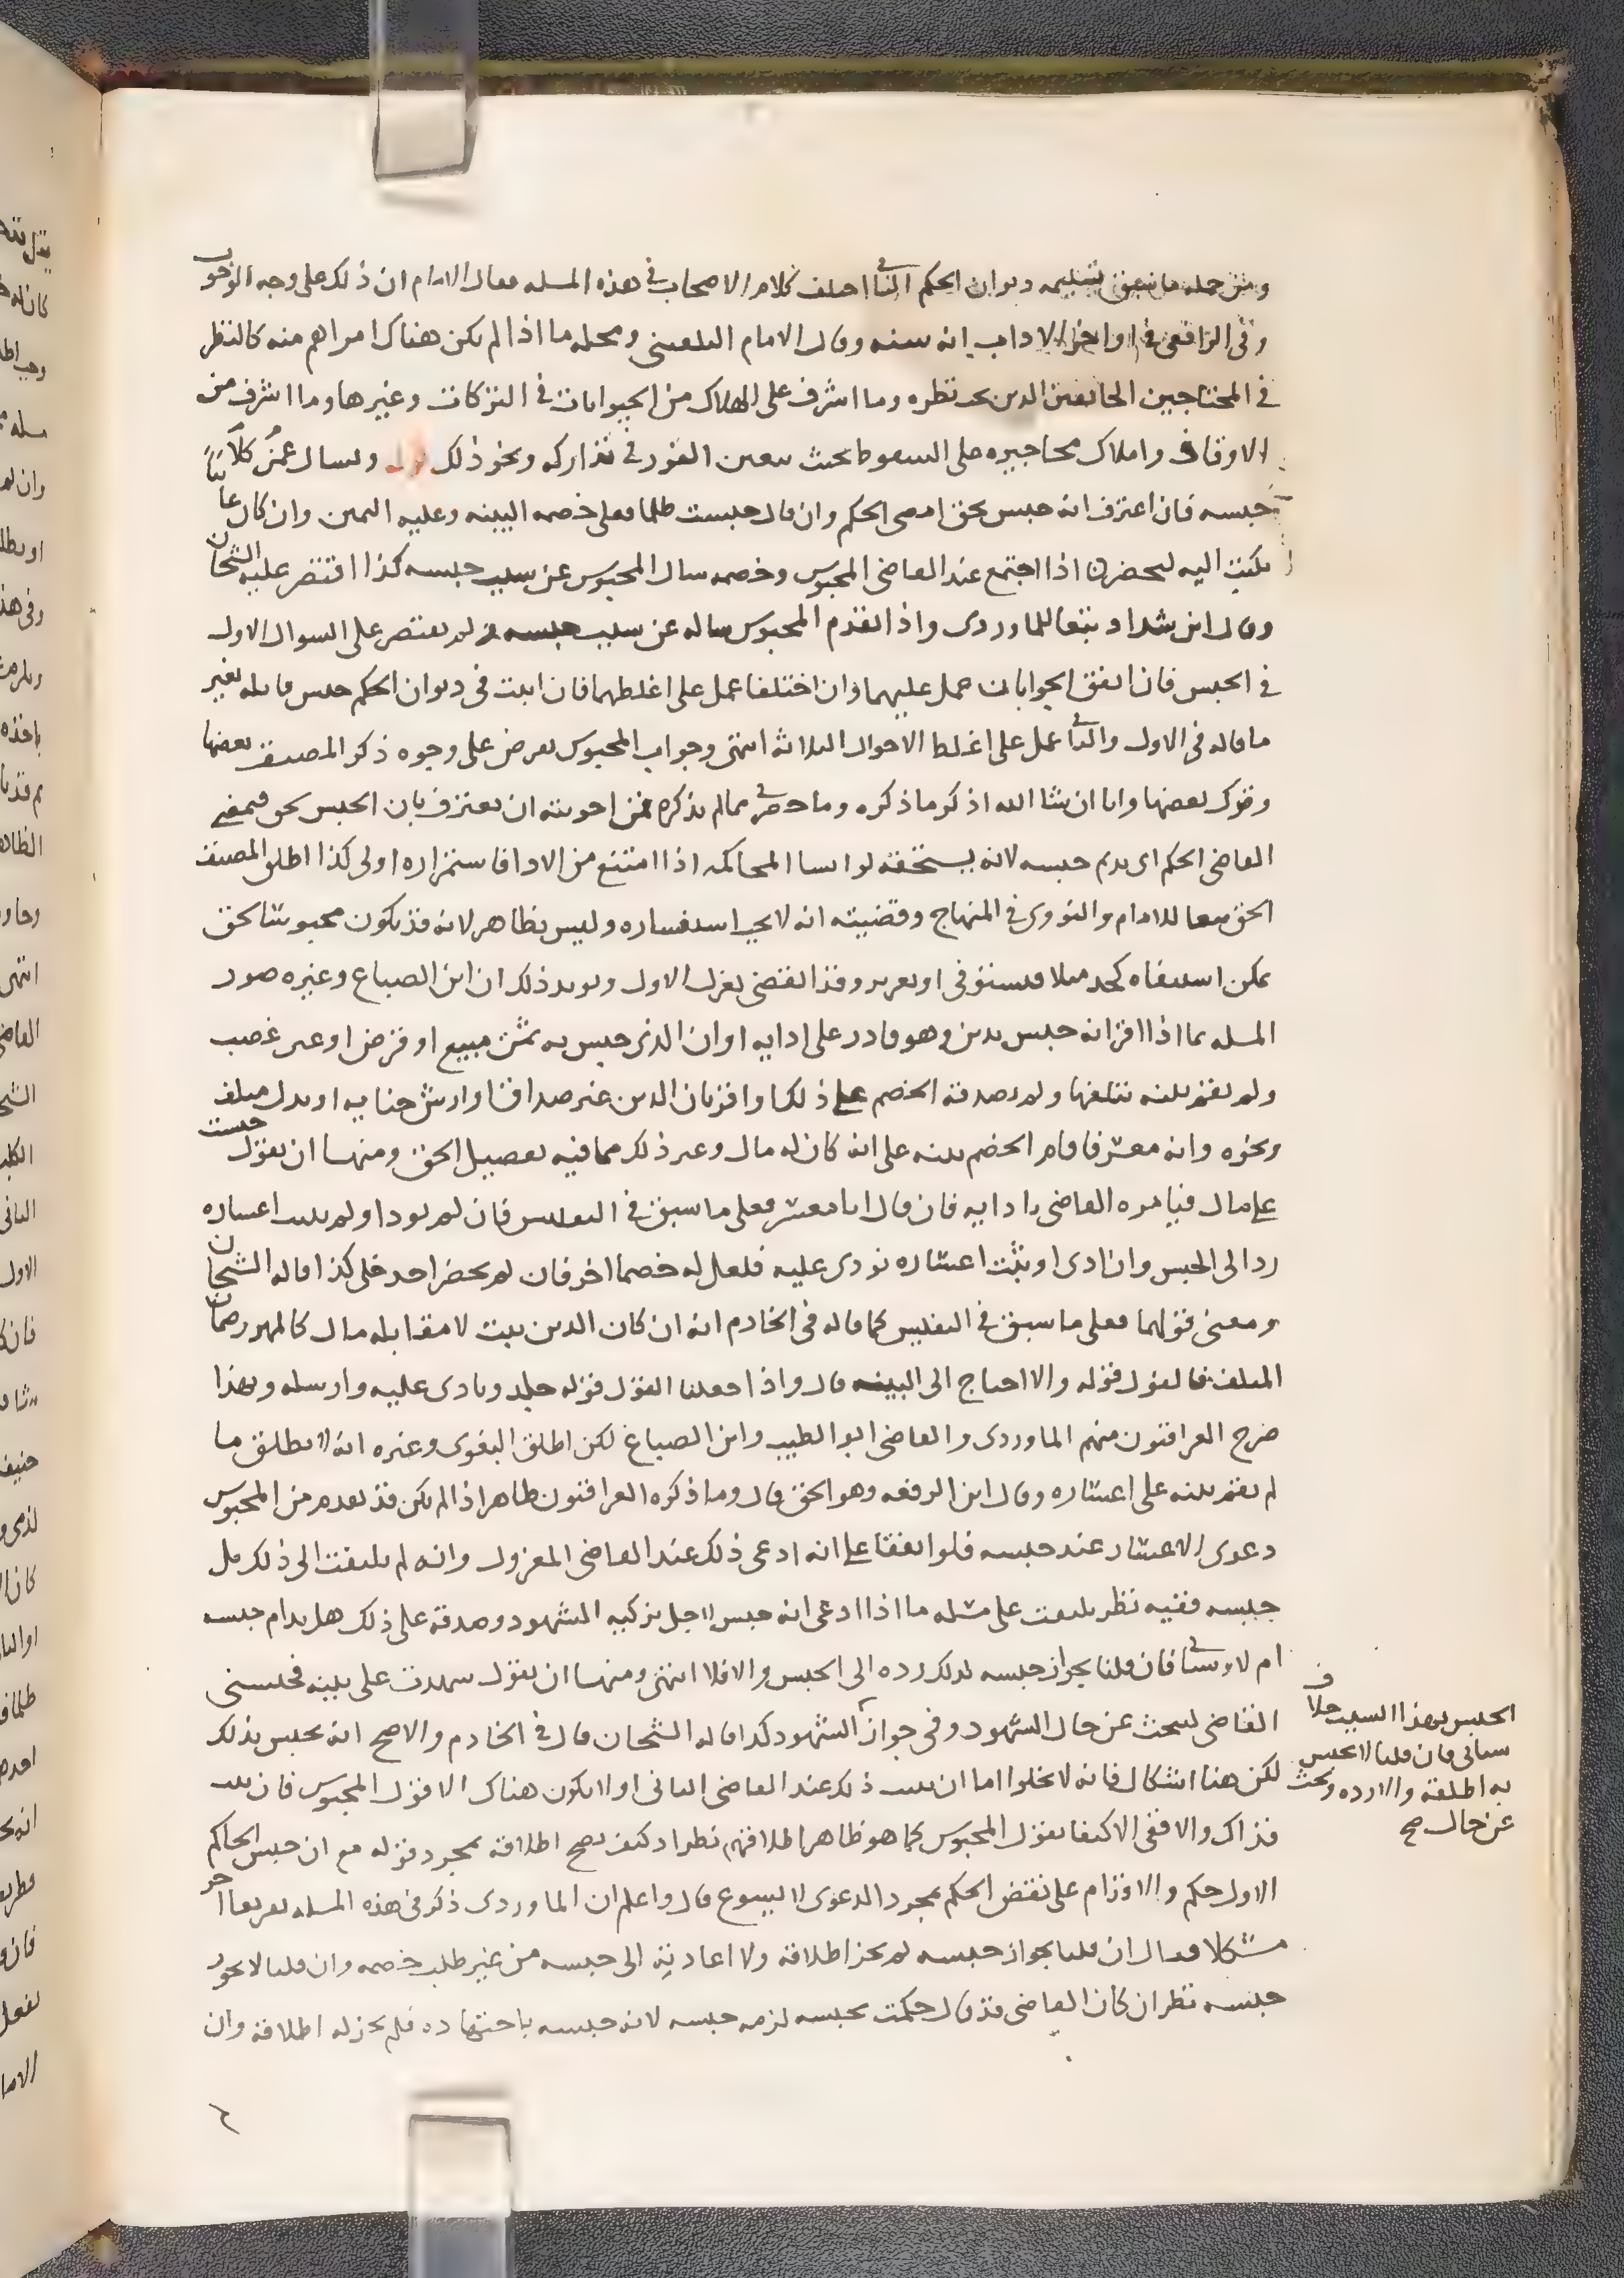 ومن جمله ما يتعلق بتسليمه ديوان الحكم الثاني اختلف كلام الاصحاب في هذه المسله فقال الامام ان ذلك على وجه الوجوب
وفي الرافعي في اواخر الاداب انه سنه وقال الامام البلقيني ومحله ما اذا لم يكن هناك امر اهم منه كالنظر
في المحتاجين الجائعين الذين تحت نظره وما اشرف على الهلاك من الحيوانات في التركات وغيرها وما اشرف من
الاوقاف واملاك محاجيره على السقوط بحيث يتعين الفور في تداركه ونحو ذلك ويسال عمن كان
حبسه فان اعترف انه حبس بحق امضى الحكم وان قال حبست ظلما فعلى خصمه البينه وعليه اليمين وان كان غايبا
يكتب اليه ليحضر اذا اجتمع عند القاضي المحبوس وخصمه سال المحبوس عن سبب حبسه كذا اقتصر عليه الشيخان
وقال ابن شداد تبعا للماوردي واذا تقدم المحبوس ساله عن سبب حبسه ولم يقتصر على السوال الاول
في الحبس فان اتفق الجوابان عمل عليهما وان اختلفا عمل على اغلظهما فان اثبت في ديوان الحكم حبس قابله بغير
ما قاله في الاول والثاني عمل على اغلظ الاحوال الثلاثه انتهى وجواب المحبوس يعرض على وجوه ذكر المصنف بعضها
وترك بعضها وانا ان شا الله اذكر ما ذكره وما حضرني مما لم يذكره فمن اجوبته ان يعترف بان الحبس بحق فيمضي
القاضي الحكم اي يديم حبسه لانه يستحقه لو انشا المحاكمه اذا امتنع من الادا فاستمراره اولى كذا اطلق المصنف
الحق تبعا للامام والنووي في المنهاج وقضيته انه لا يجب استفساره وليس بظاهر لانه قد يكون محبوسا بحق
يمكن استيفاه كحد مثلا فيستوفى او تعزير وقد انقضى بعزل الاول ويويد ذلك ان ابن الصباغ وغيره صور
المسله بما اذا اقر انه حبس بدين وهو قادر على ادايه او ان الذي حبس به ثمن مبيع او قرض او عين غصب
ولم يقم بينه بتلفها ولم يصدقه الخصم على ذلك او اقر بان الدين غير صداقا او ارش جنايه او بدل متلف
ونحوه وانه معسر فاقام الخصم بينه على انه كان له مال وغير ذلك مما فيه تفصيل الحق ومنها ان يقول حبست
على مال فيامره القاضي بادايه فان قال انا معسر فعلى ما سبق في التفليس فان لم يود او لم يثبت اعساره
رد الى الحبس وان ادى او ثبت اعساره نودي عليه فلعل له خصما اخر فان لم يحضر احد خلي كذا قاله الشيخان
ومعنى قولهما فعلى ما سبق في التفليس كما قاله في الخادم انه ان كان الدين ثبت لا مقابله مال كالمهر وضمان
المتلف فالقول قوله والا احتاج الى البينه قال واذا جعلنا القول قوله حلف ونادى عليه وارسله وبهذا
صرح العراقيون منهم الماوردي والقاضي ابو الطيب وابن الصباغ لكن اطلق البغوي وغيره انه لا يطلق ما
لم يقم بينه على اعساره وقال ابن الرفعه وهو الحق قال وما ذكره العراقيون ظاهر اذا لم يكن قد تقدم من المحبوس
دعوى الاعسار عند حبسه فلو اتفقا على انه ادعى ذلك عند القاضي المعزول وانه لم يلتفت الى ذلك بل
حبسه ففيه نظر يلتفت على مسله ما اذا ادعى انه حبس لاجل تزكيه الشهود وصدقه على ذلك هل يدام حبسه
ام لا وسياتي فان قلنا بجواز حبسه لذلك رده الى الحبس والا فلا انتهى ومنها ان يقول شهدت على بينه فحبسني
القاضي ليبحث عن حال الشهود وفي جواز الشهود كذا قاله الشيخان قال في الخادم والاصح انه يحبس بذلك
لكن هنا اشكال فانه لا يخلوا اما ان يثبت ذلك عند القاضي الثاني او لا يكون هناك الا قول المحبوس فان ثبت
فذاك والا ففي الاكتفا بقول المحبوس كما هو ظاهر اطلاقهم نظر اذ كيف يصح اطلاقه بمجرد قوله مع ان حبس الحاكم
الاول حكم والاقدام على نقض الحكم بمجرد الدعوى لا يسوغ قال واعلم ان الماوردي ذكر في هذه المسله تفريعا اخر
مشكلا فقال ان قلنا بجواز حبسه لم يجز اطلاقه ولا اعادته الى حبسه من غير طلب خصمه وان قلنا لا يجوز
حبسه نظر ان كان القاضي قد قال حكمت بحبسه لزمه حبسه لانه حبسه باجتهاده فلم يجز له اطلاقه وان
الحبس بهذا السبب خلاف
سياتي فان قلنا لا يحبس
به اطلقه والا رده وبحث
عن حال صح